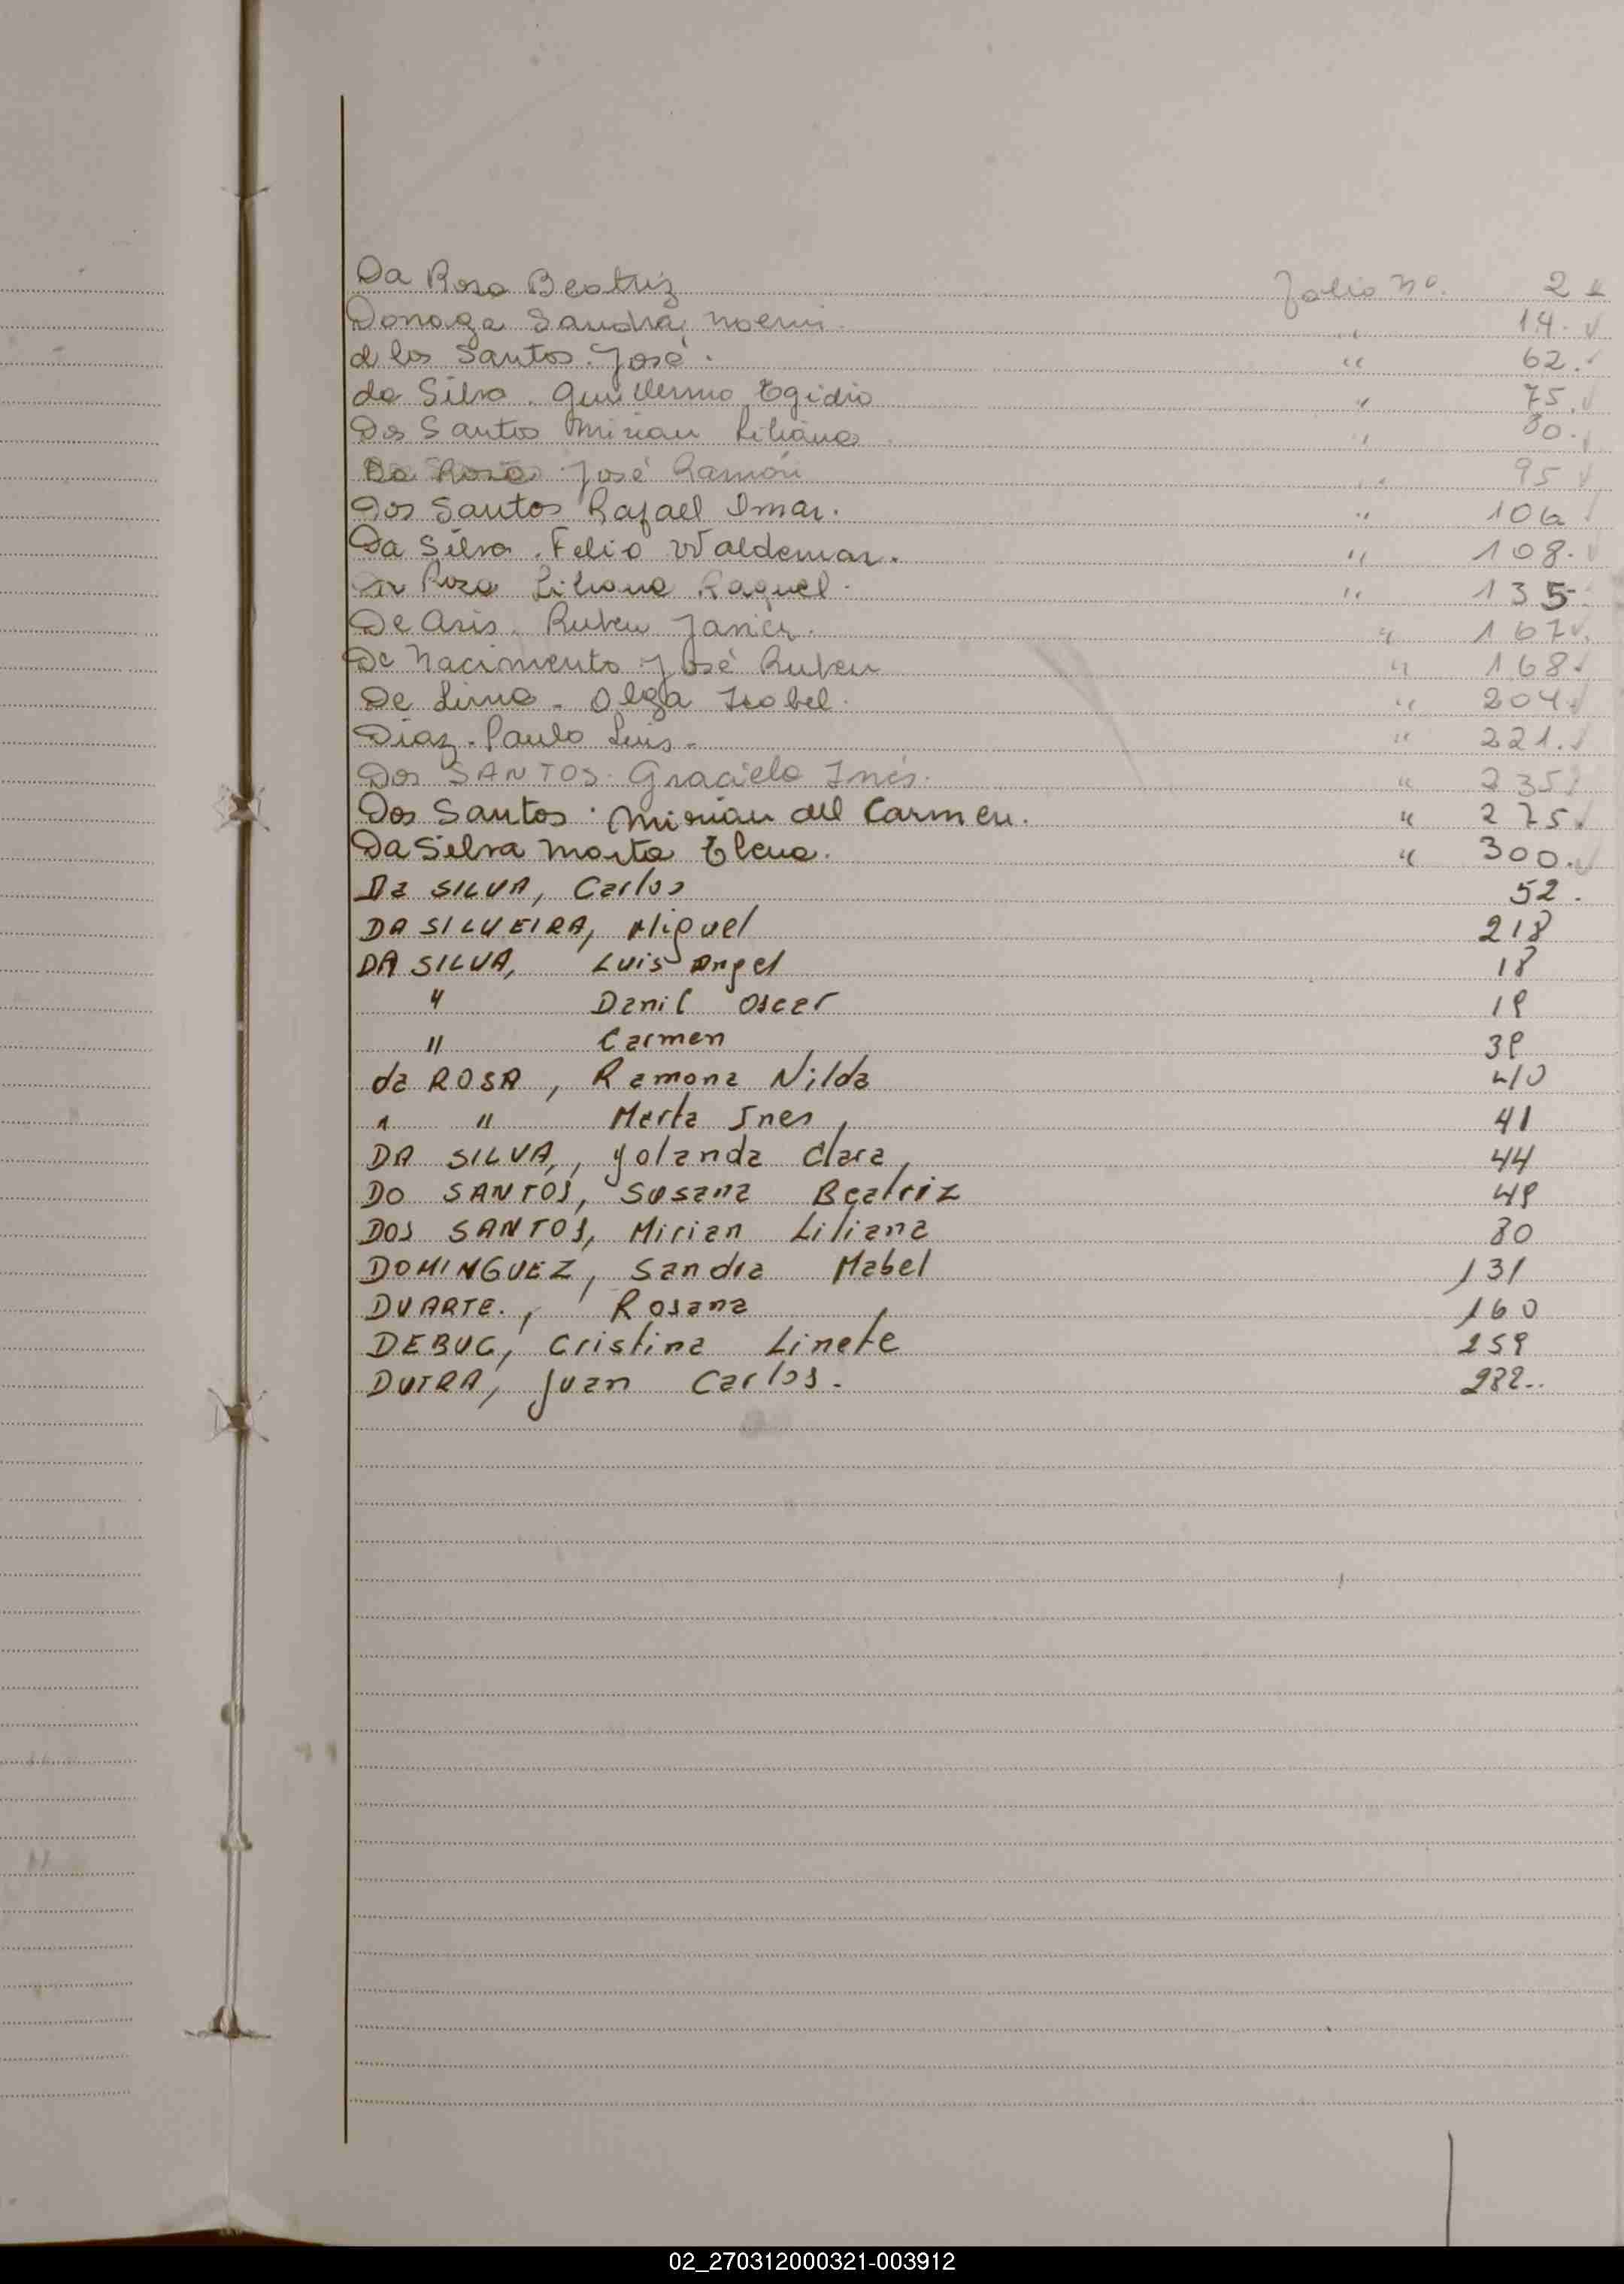 Da Rosa Beatriz Folio Nº. 2
Donaga Sandra Noemi. " 14. ✓
d los Santos. José. " 62. ✓
da Silva. Guillermo Egidio " 75. ✓
Dos Santos Mirian Liliana. " 80. ✓
Da Rosa José Ramón " 95 ✓
Dos Santos Rafael Omar. " 106 ✓
Da Silva. Felio Waldemar. " 108. ✓
Da Rosa Liliana Raquel. " 135
De Asis. Ruben Javier. " 167 ✓
Do Nacimento José Ruben " 168 ✓
De Lima. Olga Isabel. " 204 ✓
Diaz. Paulo Luis. " 221. ✓
Dos SANTOS. Graciela Inés. " 235
Dos Santos. Mirian del Carmen. " 275 ✓
Da Silva Marta Elena. " 300. ✓
Da SILVA, Carlos 52.
DA SILVEIRA, Miguel 218
DA SILVA, Luis Angel 18
" Danil Oscar 19
" Carmen 39
da ROSA, Ramona Nilda 40
" " Marta Ines 41
DA SILVA, Yolanda Clara 44
DO SANTOS, Susana Beatriz 49
DOS SANTOS, Mirian Liliana 80
DOMINGUEZ, Sandra Mabel 131
DUARTE., Rosana 160
DEBUC, Cristina Linete 259
DUTRA, Juan Carlos. 282..
02_270312000321-003912